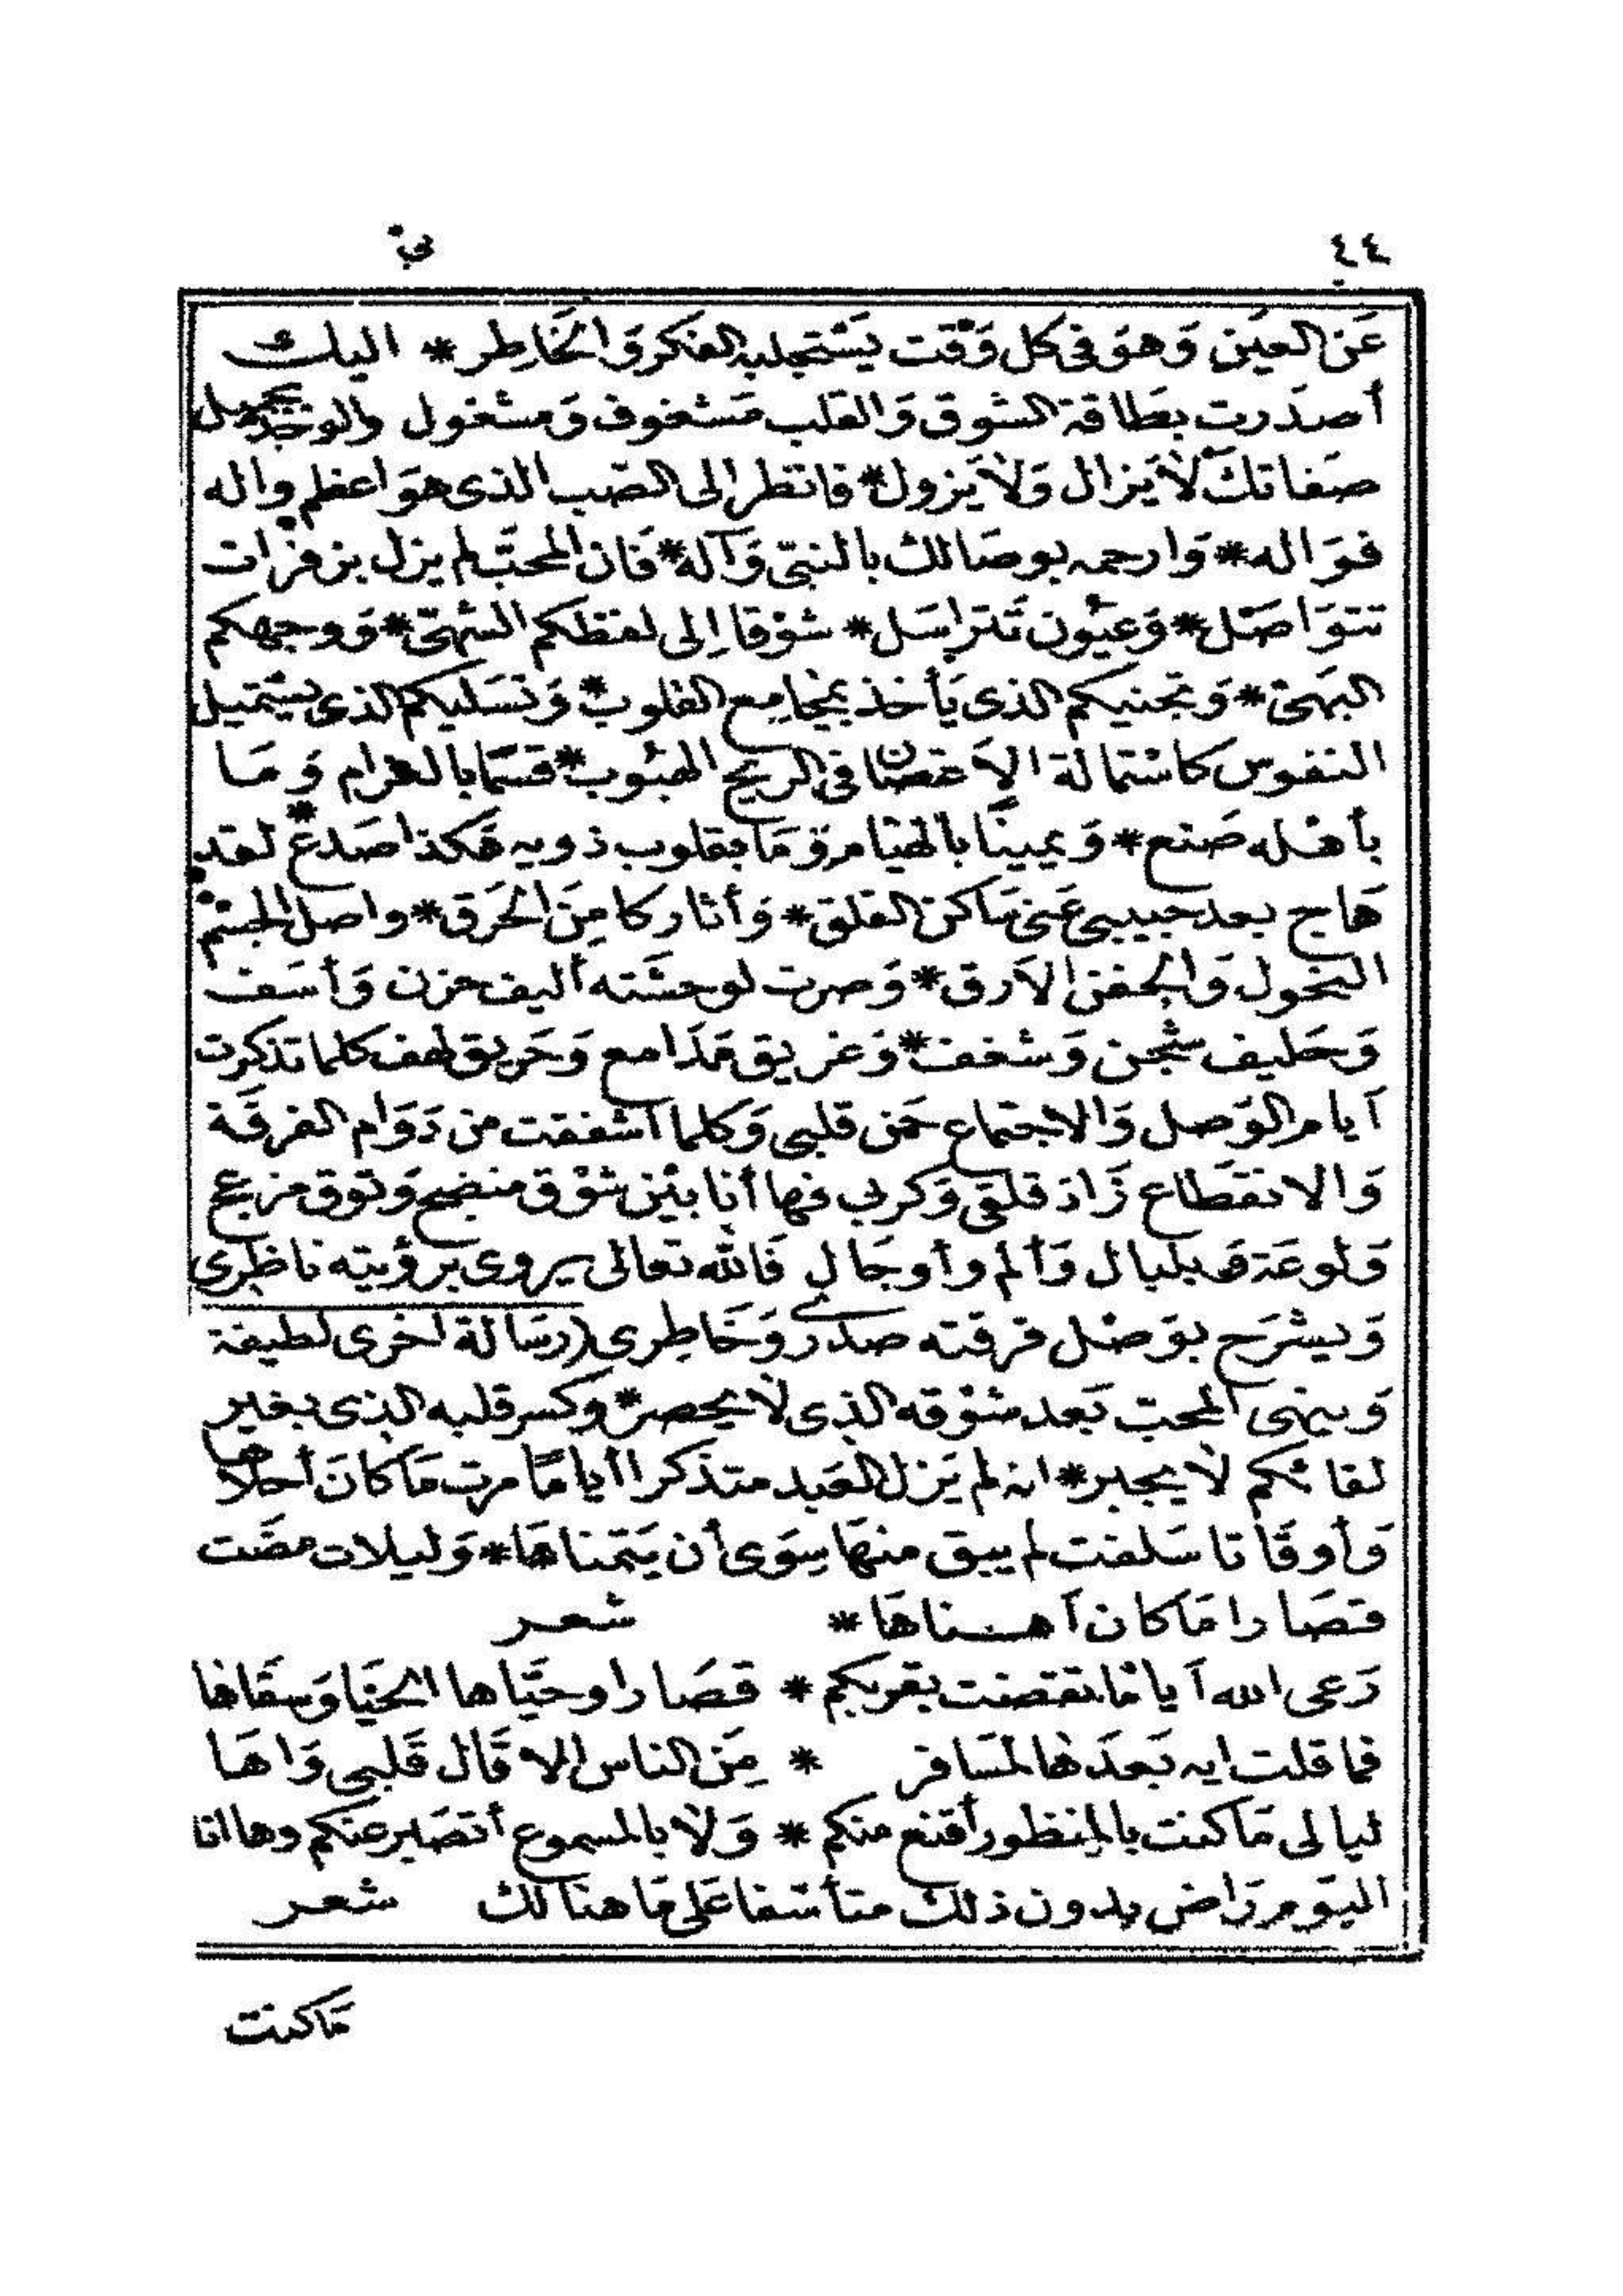 ٤٤
في
عَن العَين وَهوَ فى كل وَقت يَستجلبه الفكر وَالخَاطِر * اليك
أصدَرت بطَاقة الشوق وَالقلب مَشغوف وَمشغول والوجد بجميل
صَفاتك لاَ يَزال وَلاَ يَزول * فانظر إلى الصّب الذى هوَ اعظم واله
فوَاله * وَارحمه بوصَالك بالنبىّ وَآله * فَان المحبّ لم يزل بزفرات
تتوَاصَل * وَعيُون تَتراسَل * شوْقا إلى لفظكم الشهىّ * وَوجهكم
البَهىّ * وَتجنيكم الذى يَأخذ بمجامِع القلوب * وَتسَليكم الذى يستميل
النفوس كاستمالة الاَغصَان فى الريح الهبُوب * قسَمًا بالغرام وَمَا
بأهله صَنع * وَيمينًا بالهيَام وَمَا بقلوب ذويه هَكذا صَدع * لقد
هَاج بعد حبيبى عَنى سَاكن القلق * وَأثار كامِنَ الحَرق * واصل الجسم
النحول وَالجفن الاَرق * وَصرت لوحشَته أليف حزن وَأسَف
وَحَليف شجن وَشغف * وَغريق مَدَامع وَحَريق لهف كلما تذكرت
أيام الوَصل وَالاجتماع حَن قلبى وَكلما أشفقت من دَوَام الفرقَة
وَالانقطَاع زَادَ قلقى وَكربى فها أنا بَيْن شوْق منضج وَتوق مزعج
وَلوعَة وَبلبال وَألم وأوجَال فَالله تعالى يروى برؤيته ناظِرى
وَيشرَح بوَصل فرقته صدرى وَخَاطِرى (رسَالة اخرى لطيفة
وَينهى المحب بَعد شوْقه الذى لاَ يحصر * وكسر قلبه الذى بغير
لقائكم لاَ يجبر * انه لم يَزل العَبد متذكرا أيامًا مرت مَا كانَ أحلاها
وَأوقَاتا سَلفت لم يبق منهَا سِوَى أن يَتمناهَا * وَليلات مضَت
قصَارا مَا كان أهناهَا * شعر
رَعى الله أيامًا تقضت بقربكم * قصَارا وحيّاها الحَيَا وَسقاهَا
فما قلت ايه بَعدَهَا لمسَافر * مِن الناس الا قَال قَلبى وَاهَا
ليالى مَا كنت بالمنظور أقنع منكم * وَلاَ بالمسموع أتصَبر عنكم وها انا
اليَوم رَاض بدون ذلك متأسّفا عَلى مَا هنالك شعر
مَا كنت